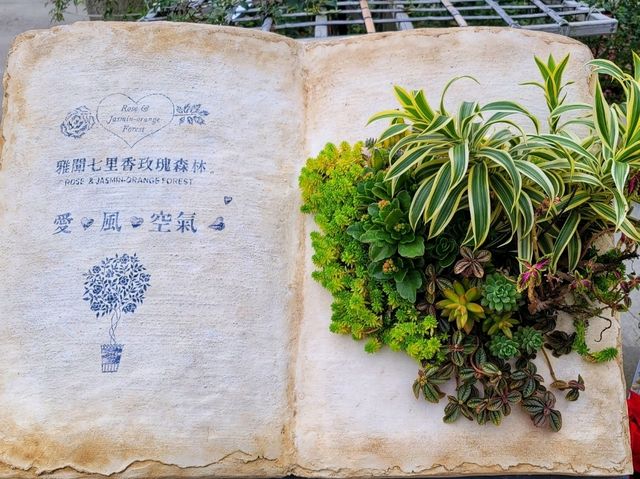 Rose &
Jasmin-orange
Forest
雅聞七里香玫瑰森林
ROSE & JASMIN-ORANGE FOREST
愛 風 空氣